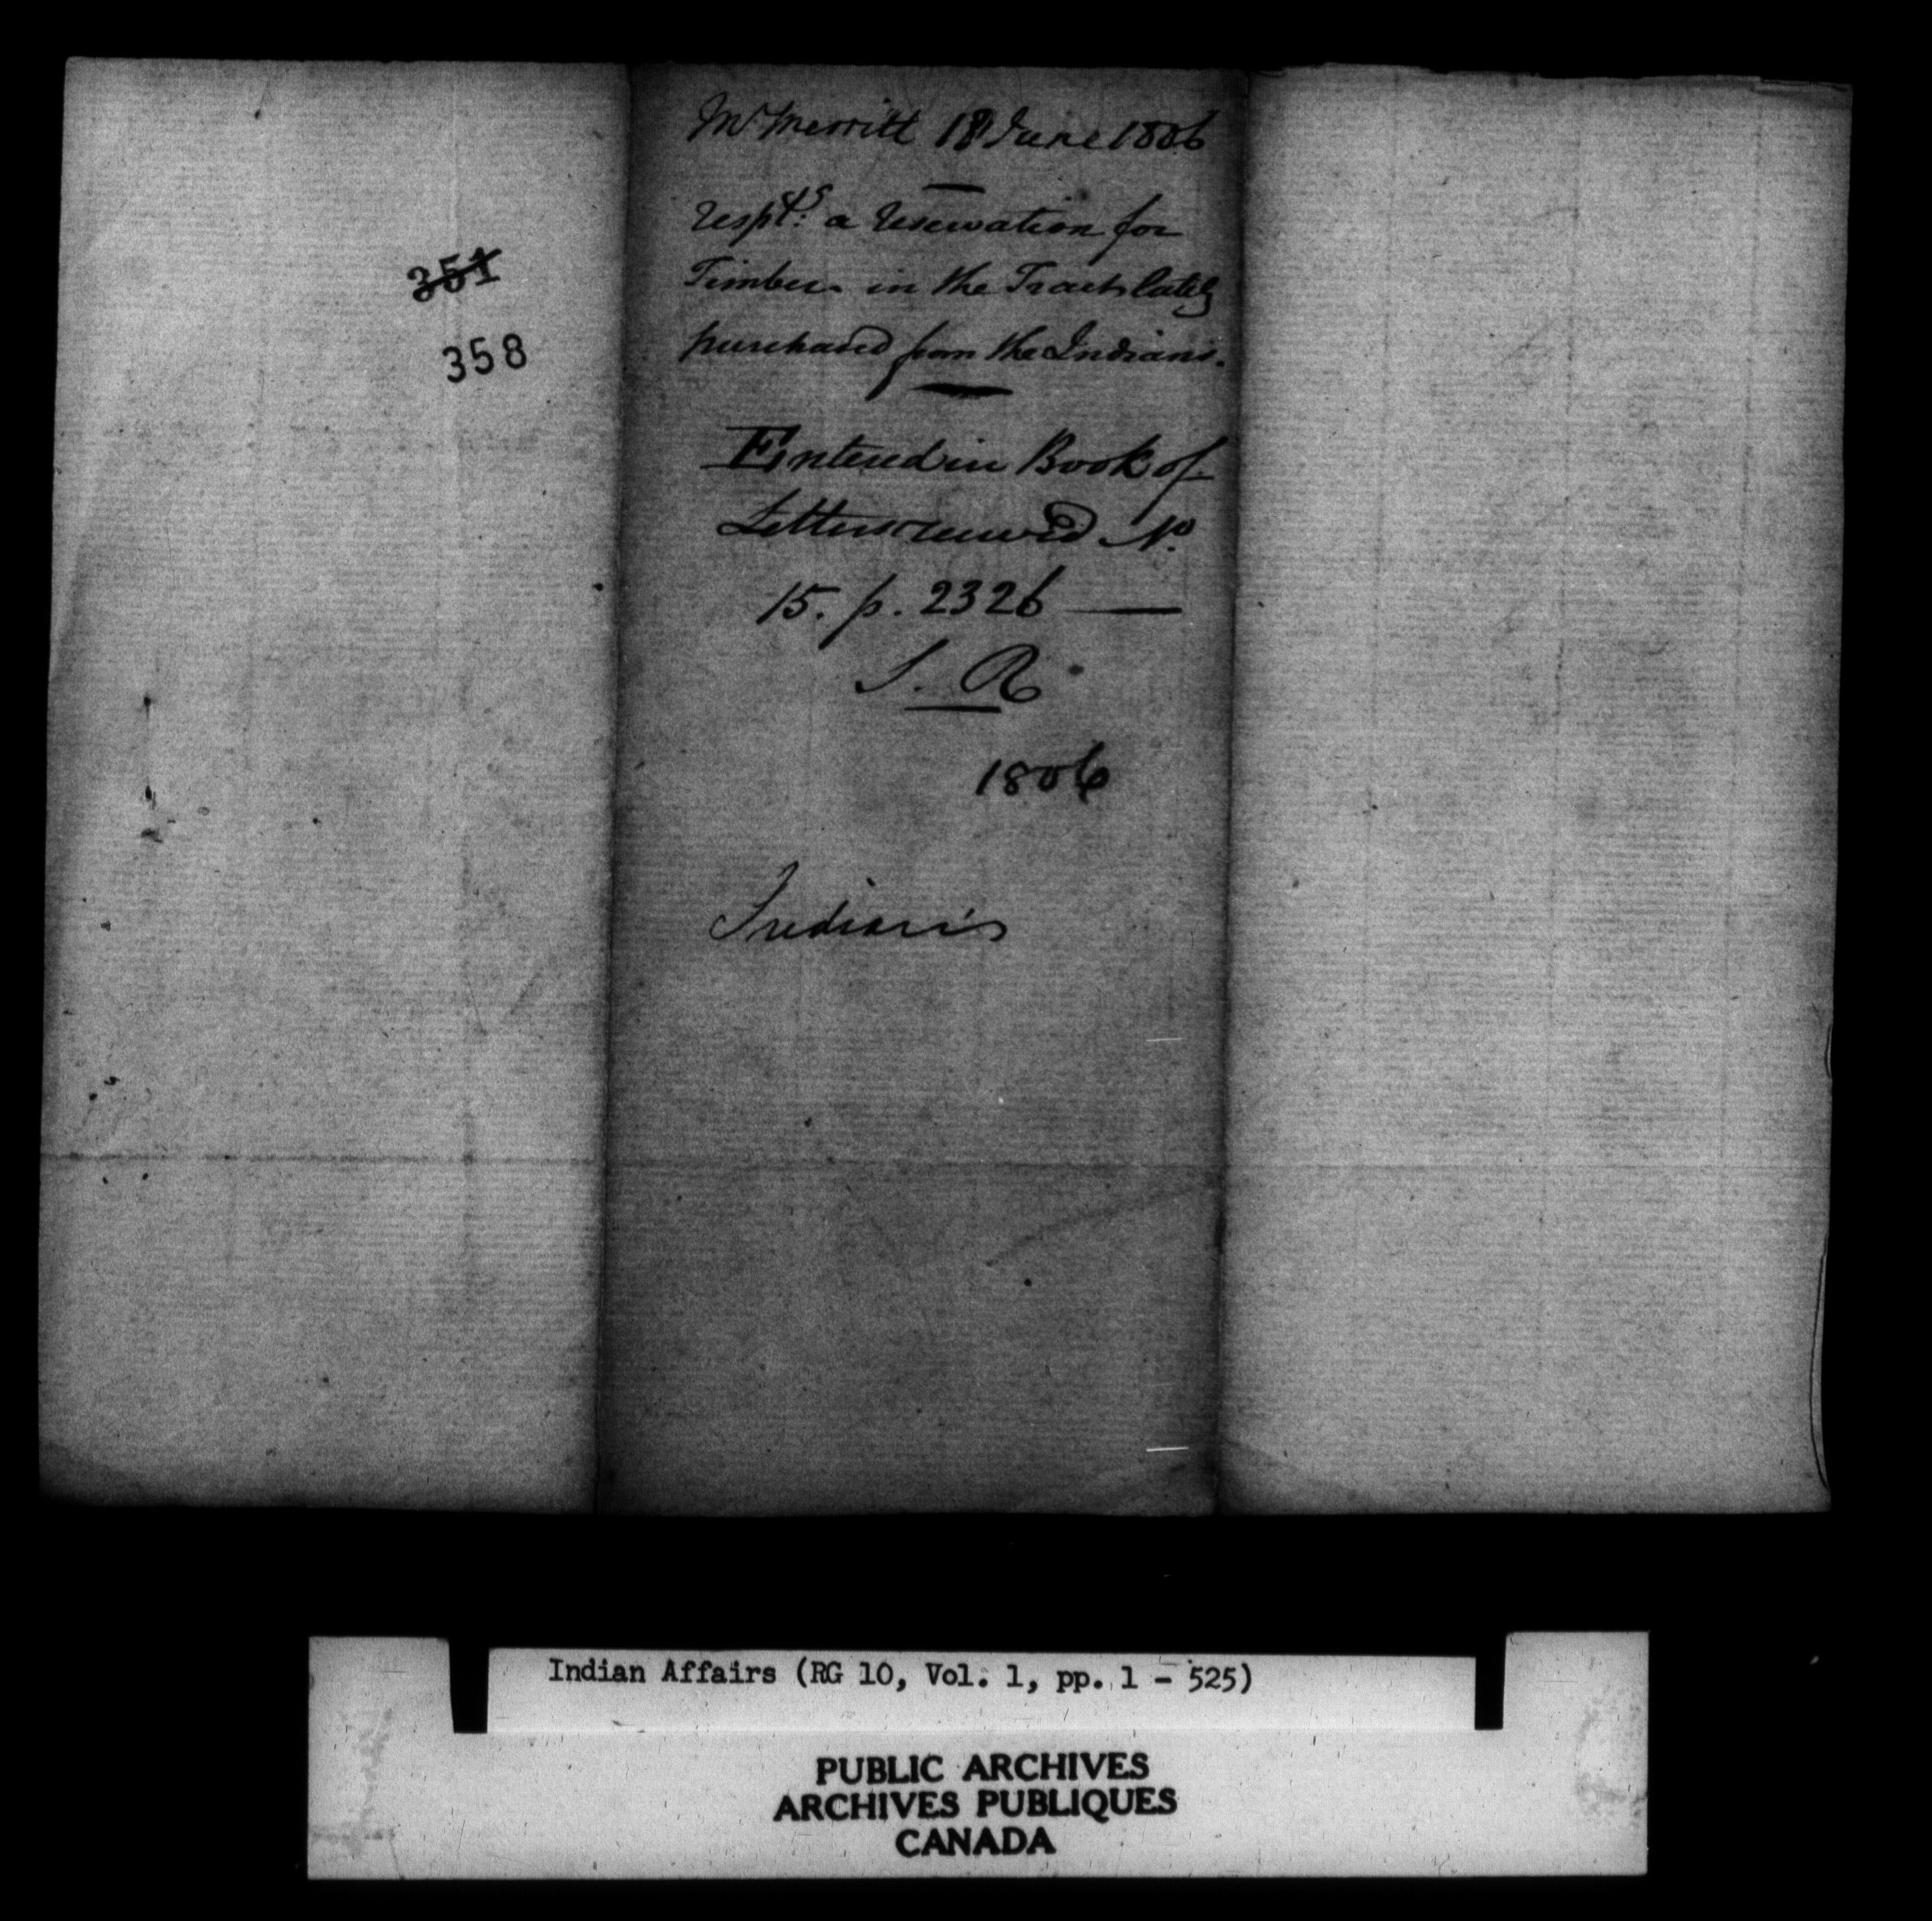 351
358
Mr Merritt 18 June 1806
respts. a reservation for
Timber in the Tract lately
purchased from the Indians.
Entered in Book of
Letters received No.
15. p. 2326
S. R
1806
Indians
Indian Affairs (RG 10, Vol. 1, pp. 1 - 525)
PUBLIC ARCHIVES
ARCHIVES PUBLIQUES
CANADA